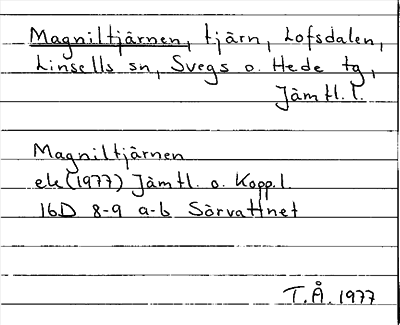 Magniltjärnen, tjärn, Lofsdalen,
Linsells sn, Svegs o. Hede tg,
Jämtl. l.
Magniltjärnen
ek (1977) Jämtl. o. Kopp. l.
16D 8-9 a-b Sörvattnet
T.Å. 1977